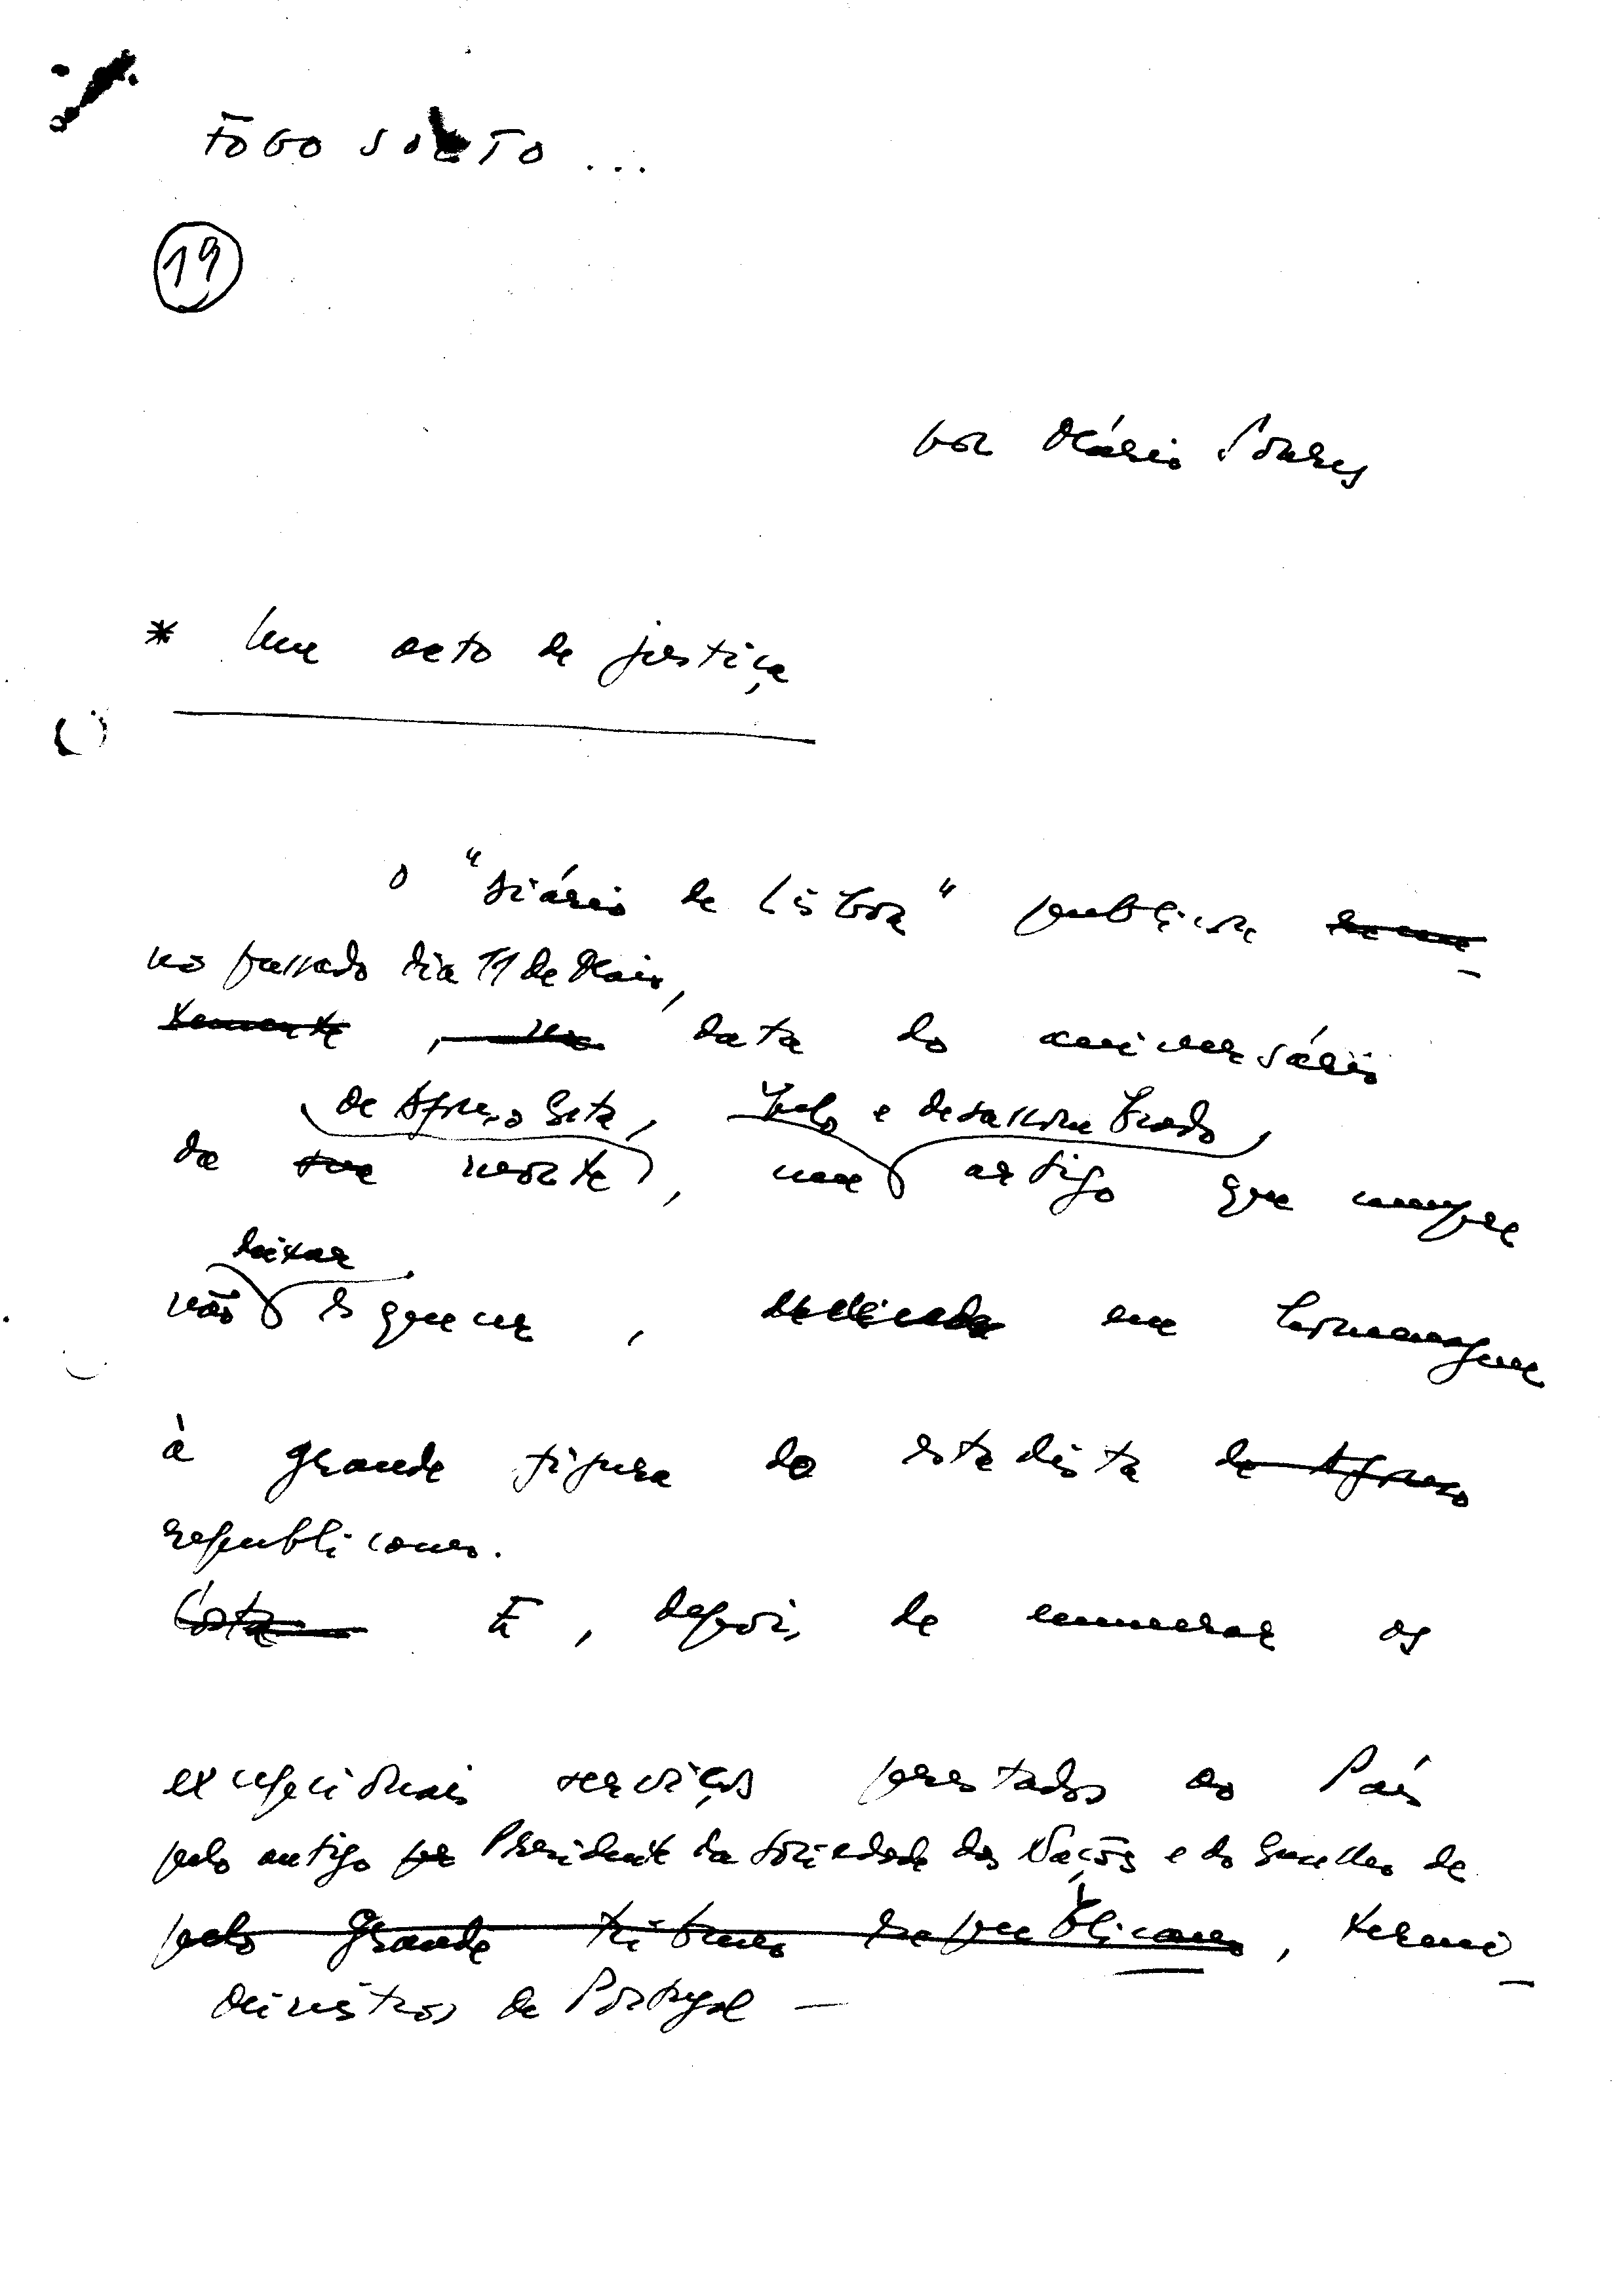 FOGO SOLTO ...
19
por Mário Soares
* Um acto de justiça
O "Diário de Lisboa" publicou
no passado dia 11 de Maio,
data do aniversário
de Afonso Costa, belo e desassombrado,
da sua morte, um artigo que cumpre
deixar
não esquecer, dedicado em homenagem
à grande figura do estadista de Afonso
republicano.
Costa E, depois de enumerar os
excepcionais serviços prestados ao País
pelo antigo Presidente da Sociedade das Nações e do Conselho de
pelo grande tribuno republicano, termi-
Ministros de Portugal —